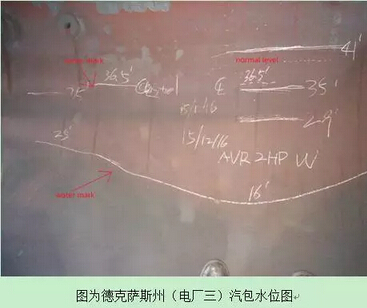 41'
water mark
normal level
36.5'
36.5'
35'
29'
15/12/16
25'
AVR 2HP W
water mark
16'
图为德克萨斯州（电厂三）汽包水位图